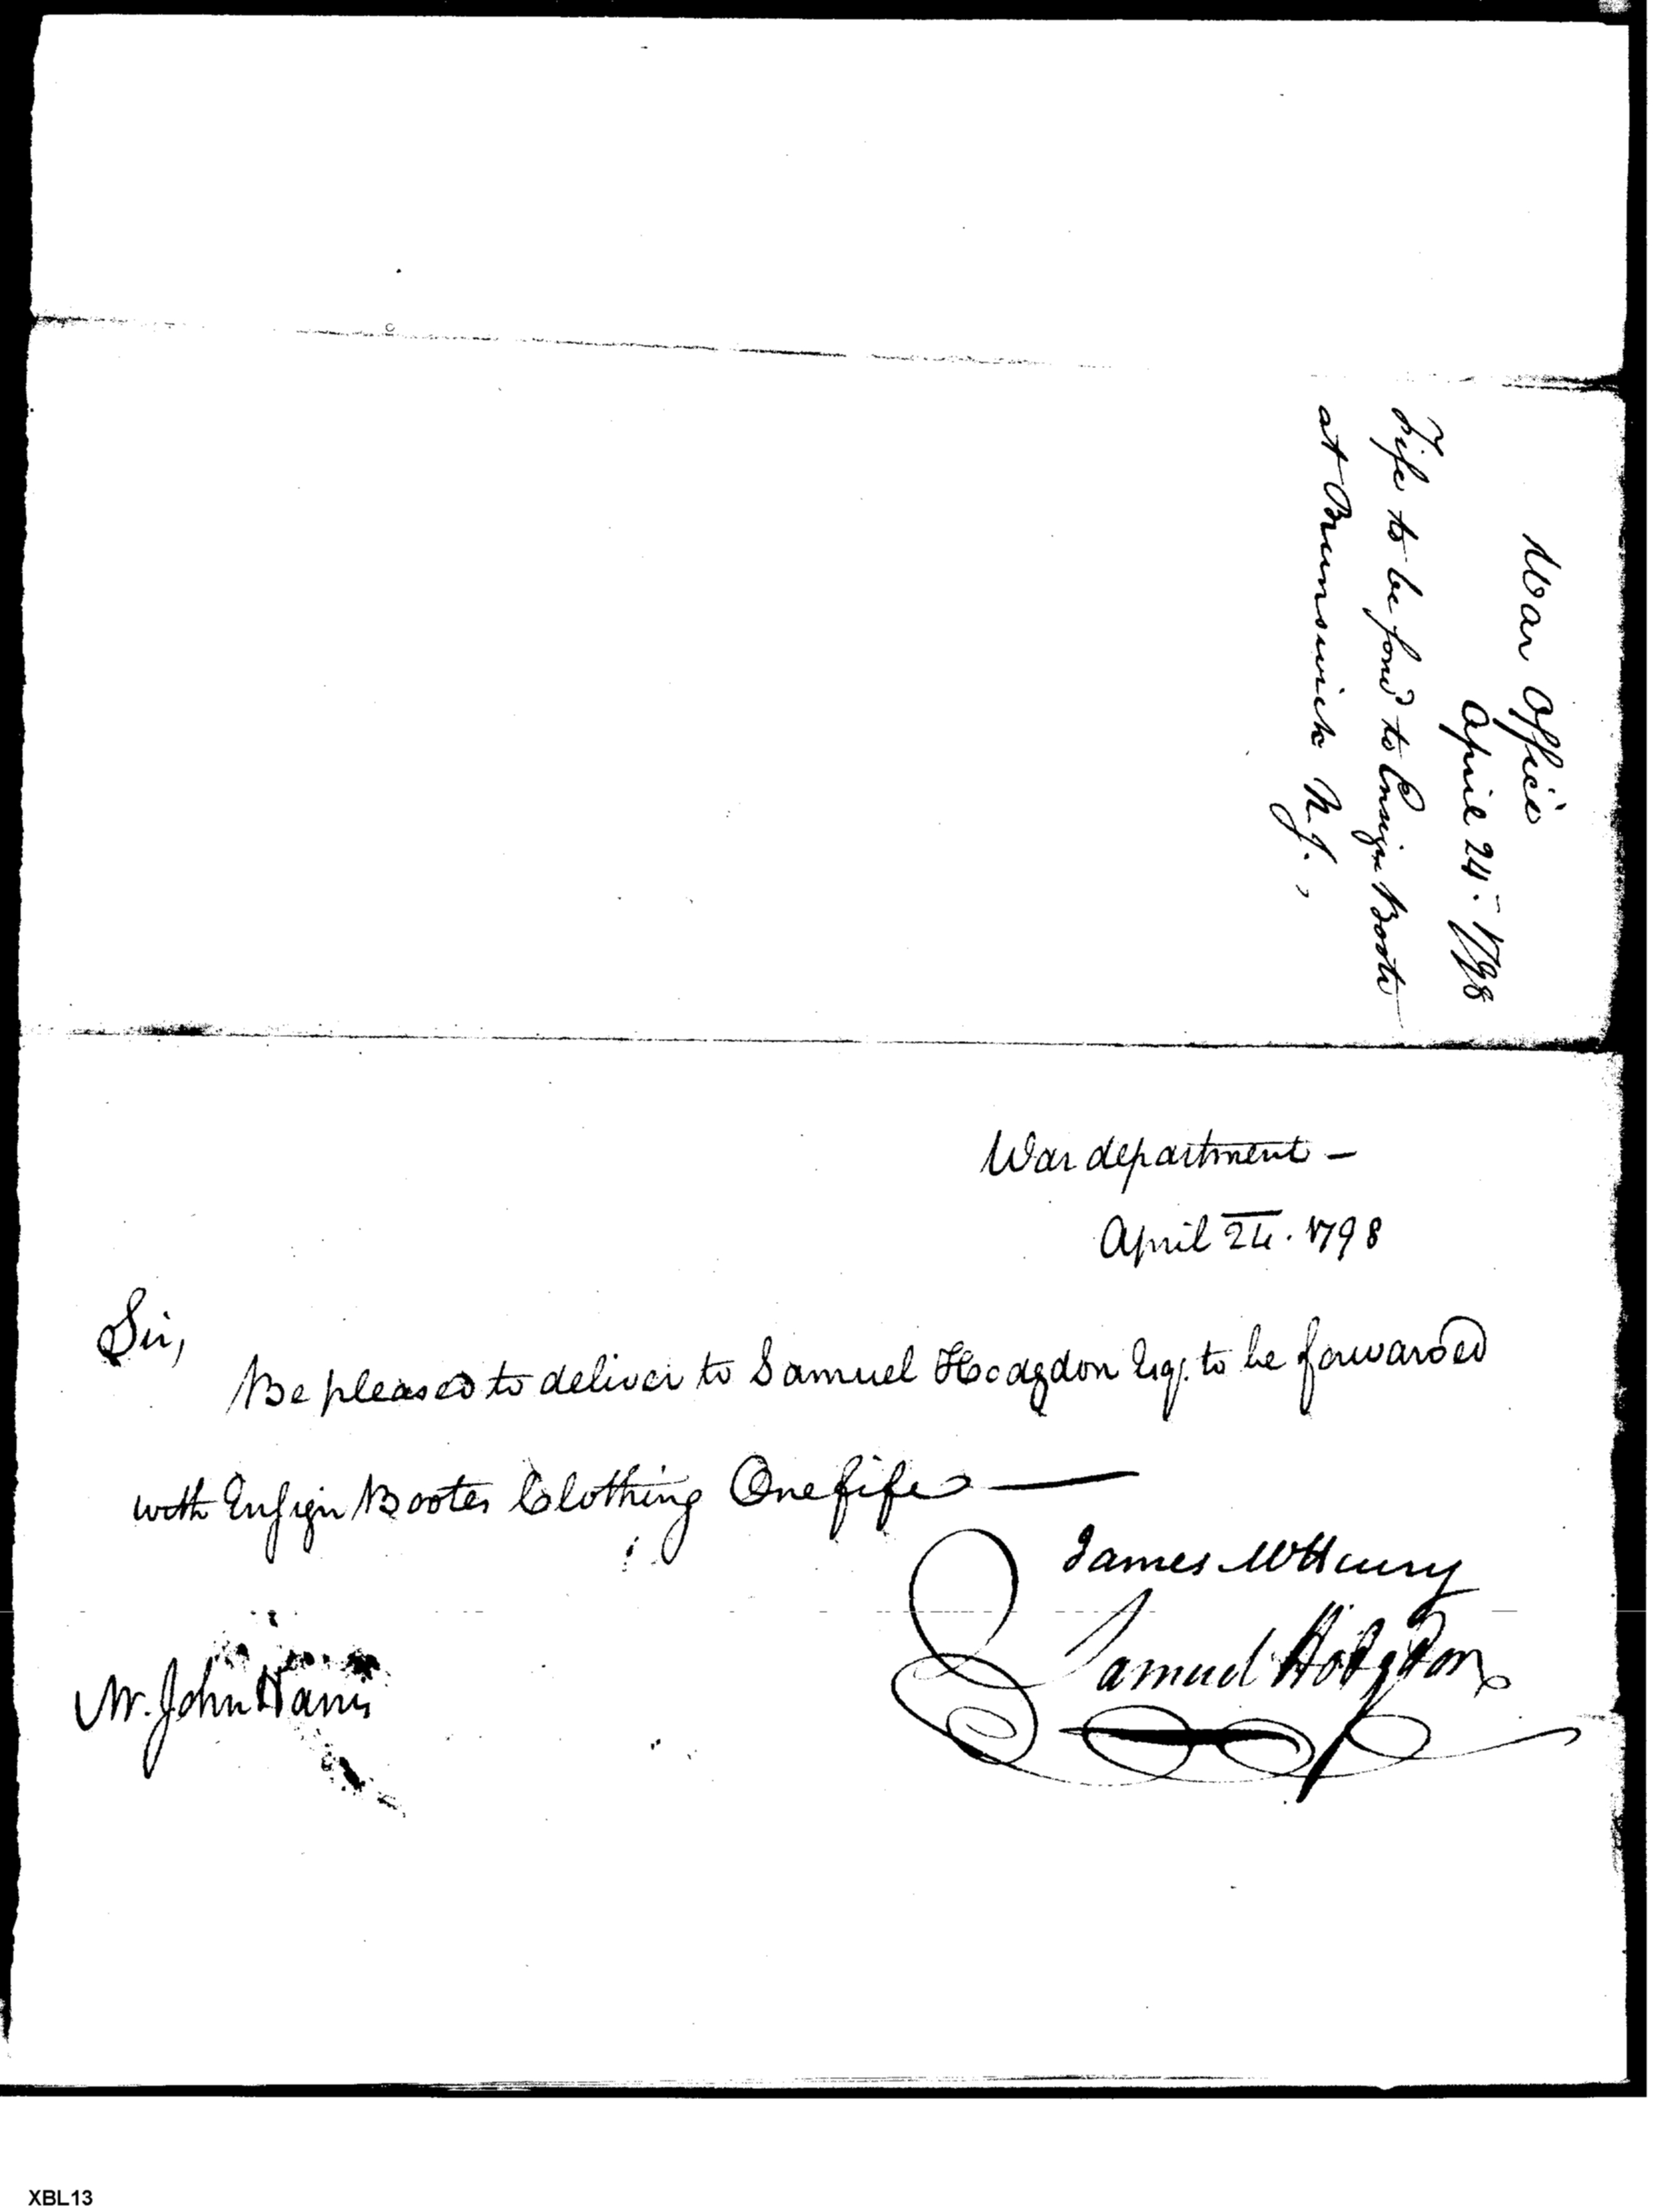 War Office
April 24. 1798
Fife to be forwd to Ensign Boote
at Brunswick N.J.,
War department —
April 24. 1798
Sir,
Be pleased to deliver to Samuel Hodgdon Esq. to be forwarded
with Ensign Bootes Clothing One fife —
James McHenry
Samuel Hodgdon
Mr. John Harris
XBL13